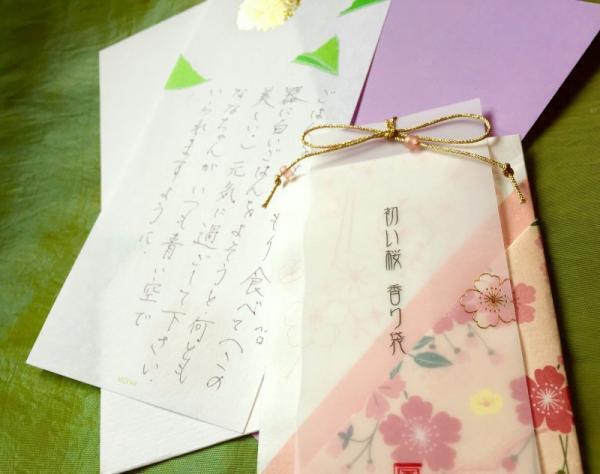 初い桜 香り袋
もり 食べて
器に白いごはんをよそうと 何とも
美しい 元気に過ごして下さい.
ななちゃんが いつも 青い空で
いられますように.